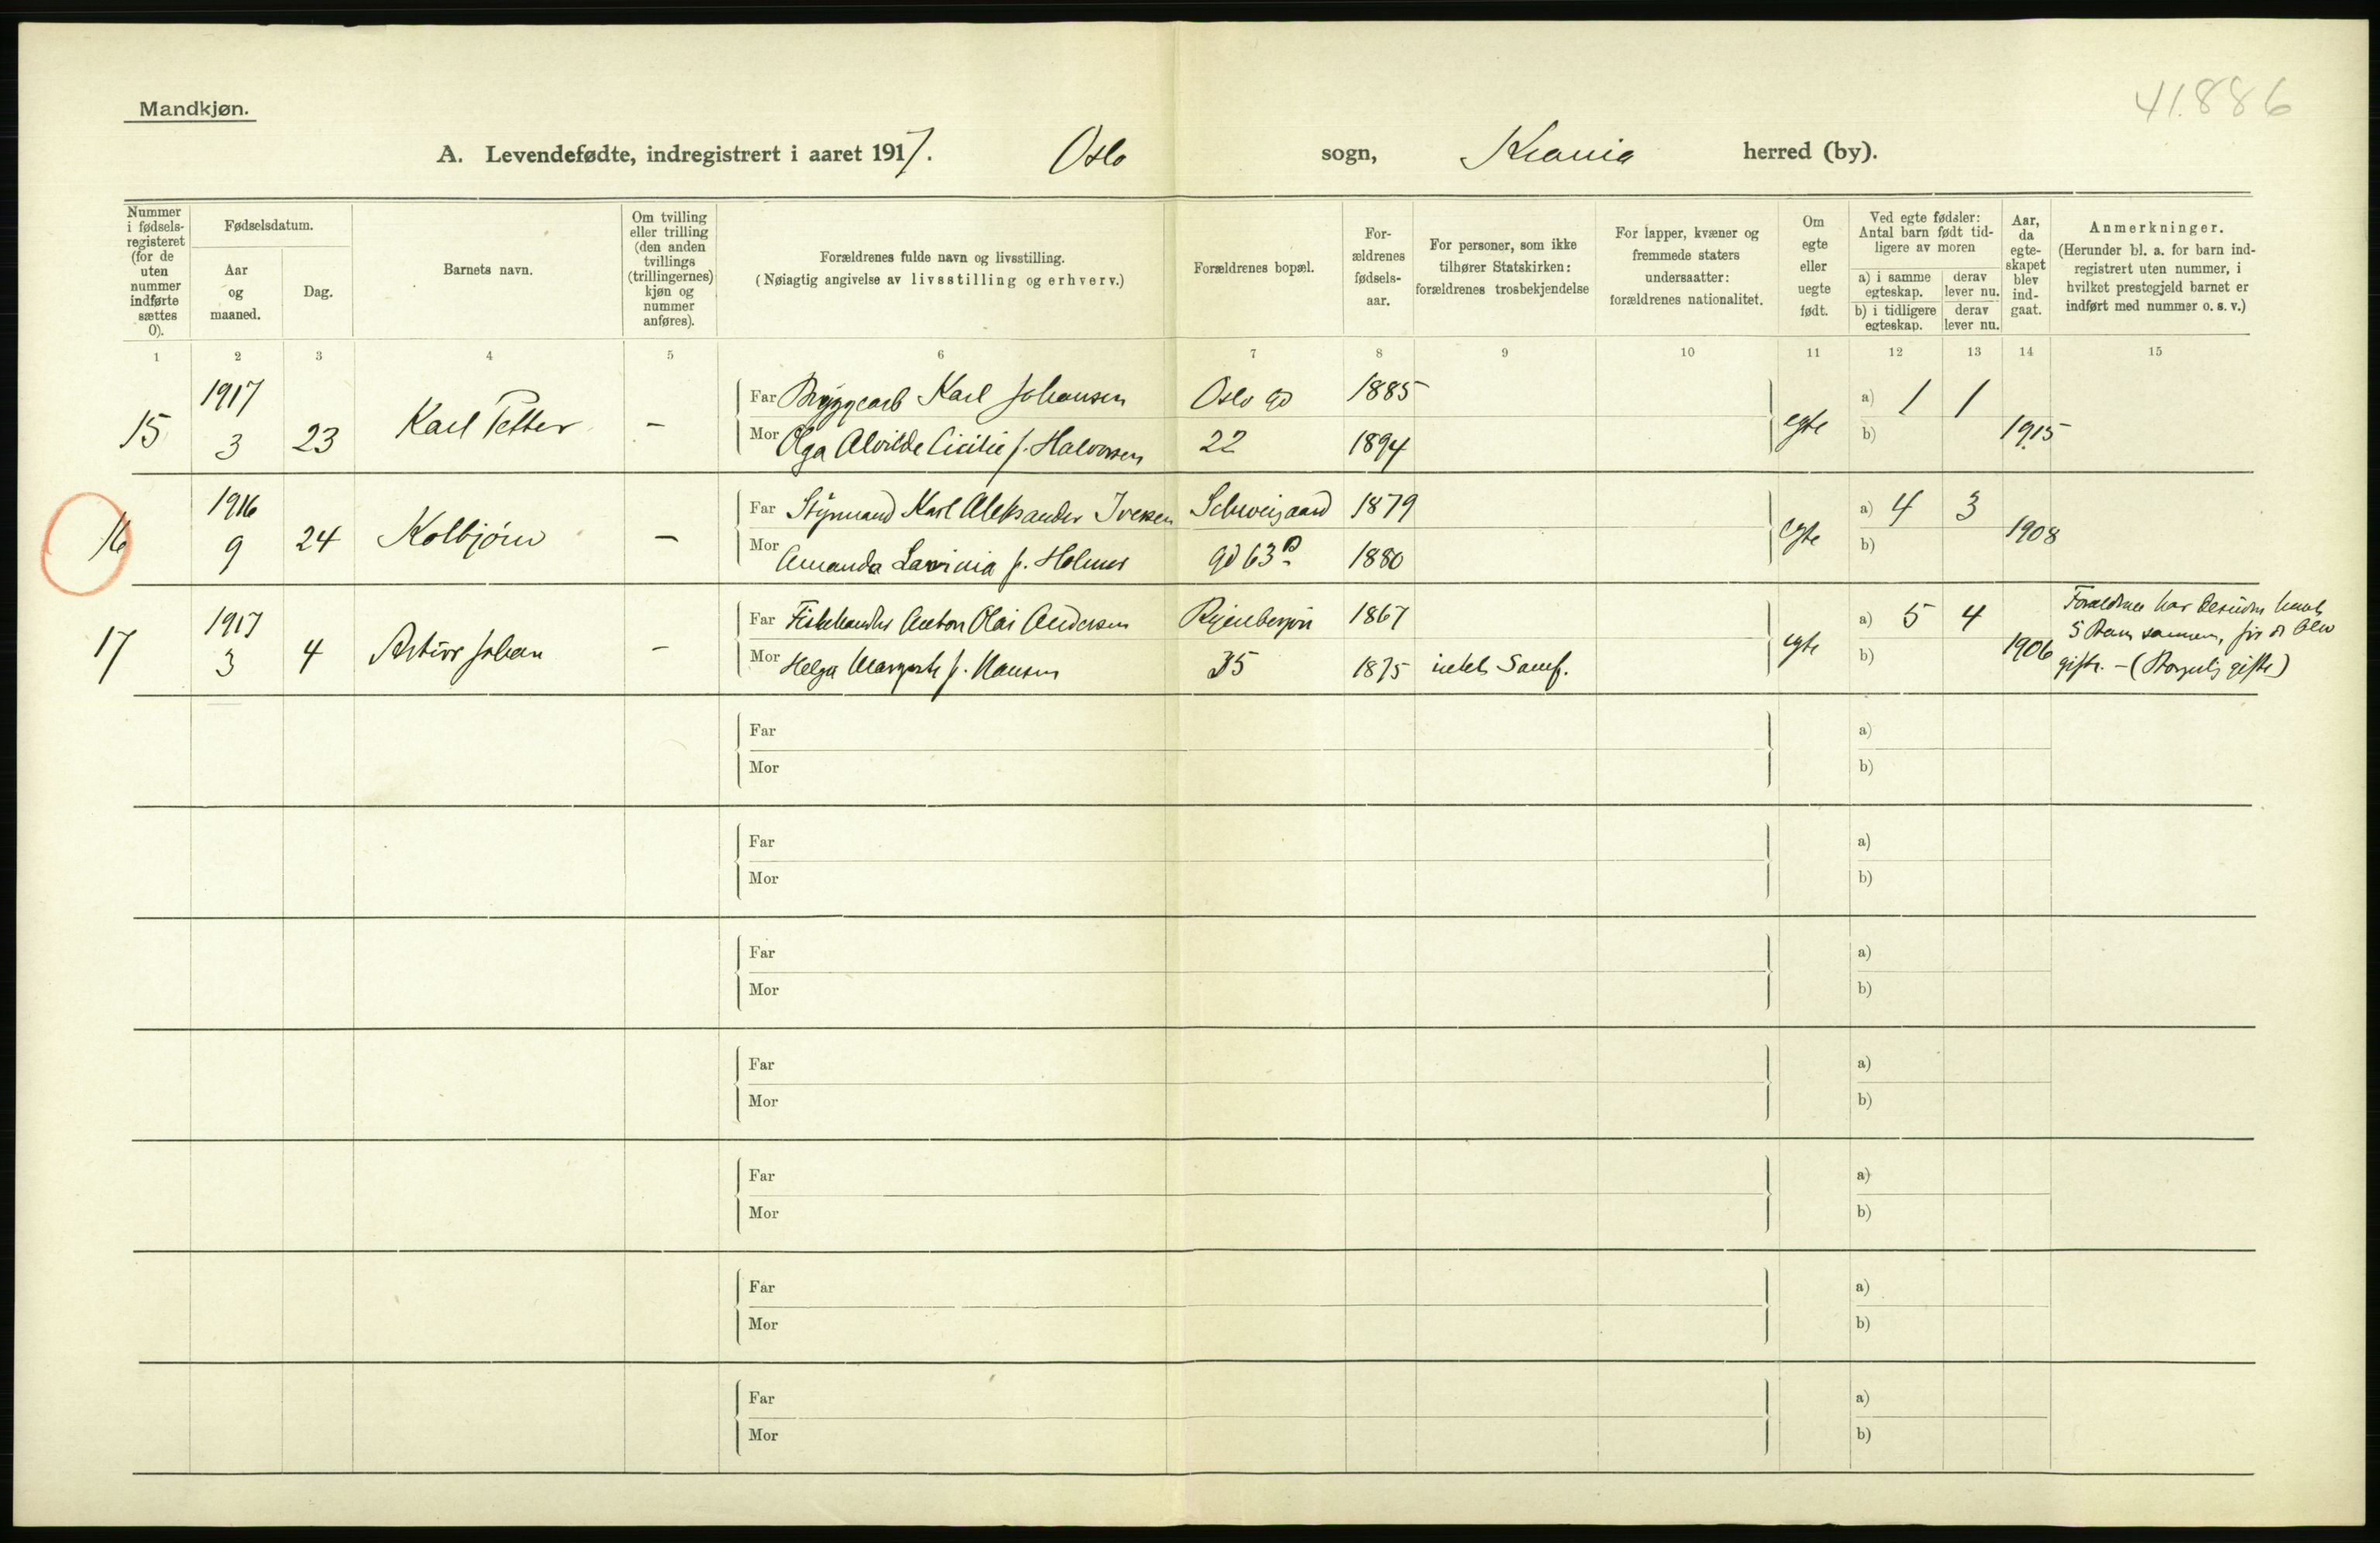 41.886
Mandkjøn.
A. Levendefødte, indregistrert i aaret 1917. Oslo sogn, Kr.ania herred (by).
Nummer i fødselsregisteret (for de uten nummer indførte sættes 0).
Fødselsdatum.
Aar og maaned.
Dag.
Barnets navn.
Om tvilling eller trilling (den anden tvillings (trillingernes) kjøn og nummer anføres).
Forældrenes fulde navn og livsstilling.
(Nøiagtig angivelse av livsstilling og erhverv.)
Forældrenes bopæl.
Forældrenes fødselsaar.
For personer, som ikke tilhører Statskirken: forældrenes trosbekjendelse
For lapper, kvæner og fremmede staters undersaatter: forældrenes nationalitet.
Om egte eller uegte født.
Ved egte fødsler: Antal barn født tidligere av moren
a) i samme egteskap.
derav lever nu.
b) i tidligere egteskap.
derav lever nu.
Aar, da egteskapet blev indgaat.
Anmerkninger.
(Herunder bl. a. for barn indregistrert uten nummer, i hvilket prestegjeld barnet er indført med nummer o. s. v.)
1 2 3 4 5 6 7 8 9 10 11 12 13 14 15
1917 Far Bryggearb Karl Johansen Oslo gd 1885 a) 1 1
15 3 23 Karl Petter – Mor Olga Alvilde Cicilie f. Halvorsen 22 1894 egte b) 1915
1916 Far Styrmand Karl Aleksander Iversen Schweigaard 1879 a) 4 3
16 9 24 Kolbjörn – Mor Amanda Lavinia f. Holmes gd 63 B 1880 egte b) 1908
1917 Far Fiskehandler Anton Olai Andersen Ryenbergvn 1867 a) 5 4 Forældrene har desuden havt
17 3 4 Artur Johan – Mor Helga Margrete f. Hansen 35 1875 intet Samf. egte b) 1906 5 Barn sammen, før de blev
gifte. – (Borgerlig gifte)
Far a)
Mor b)
Far a)
Mor b)
Far a)
Mor b)
Far a)
Mor b)
Far a)
Mor b)
Far a)
Mor b)
Far a)
Mor b)